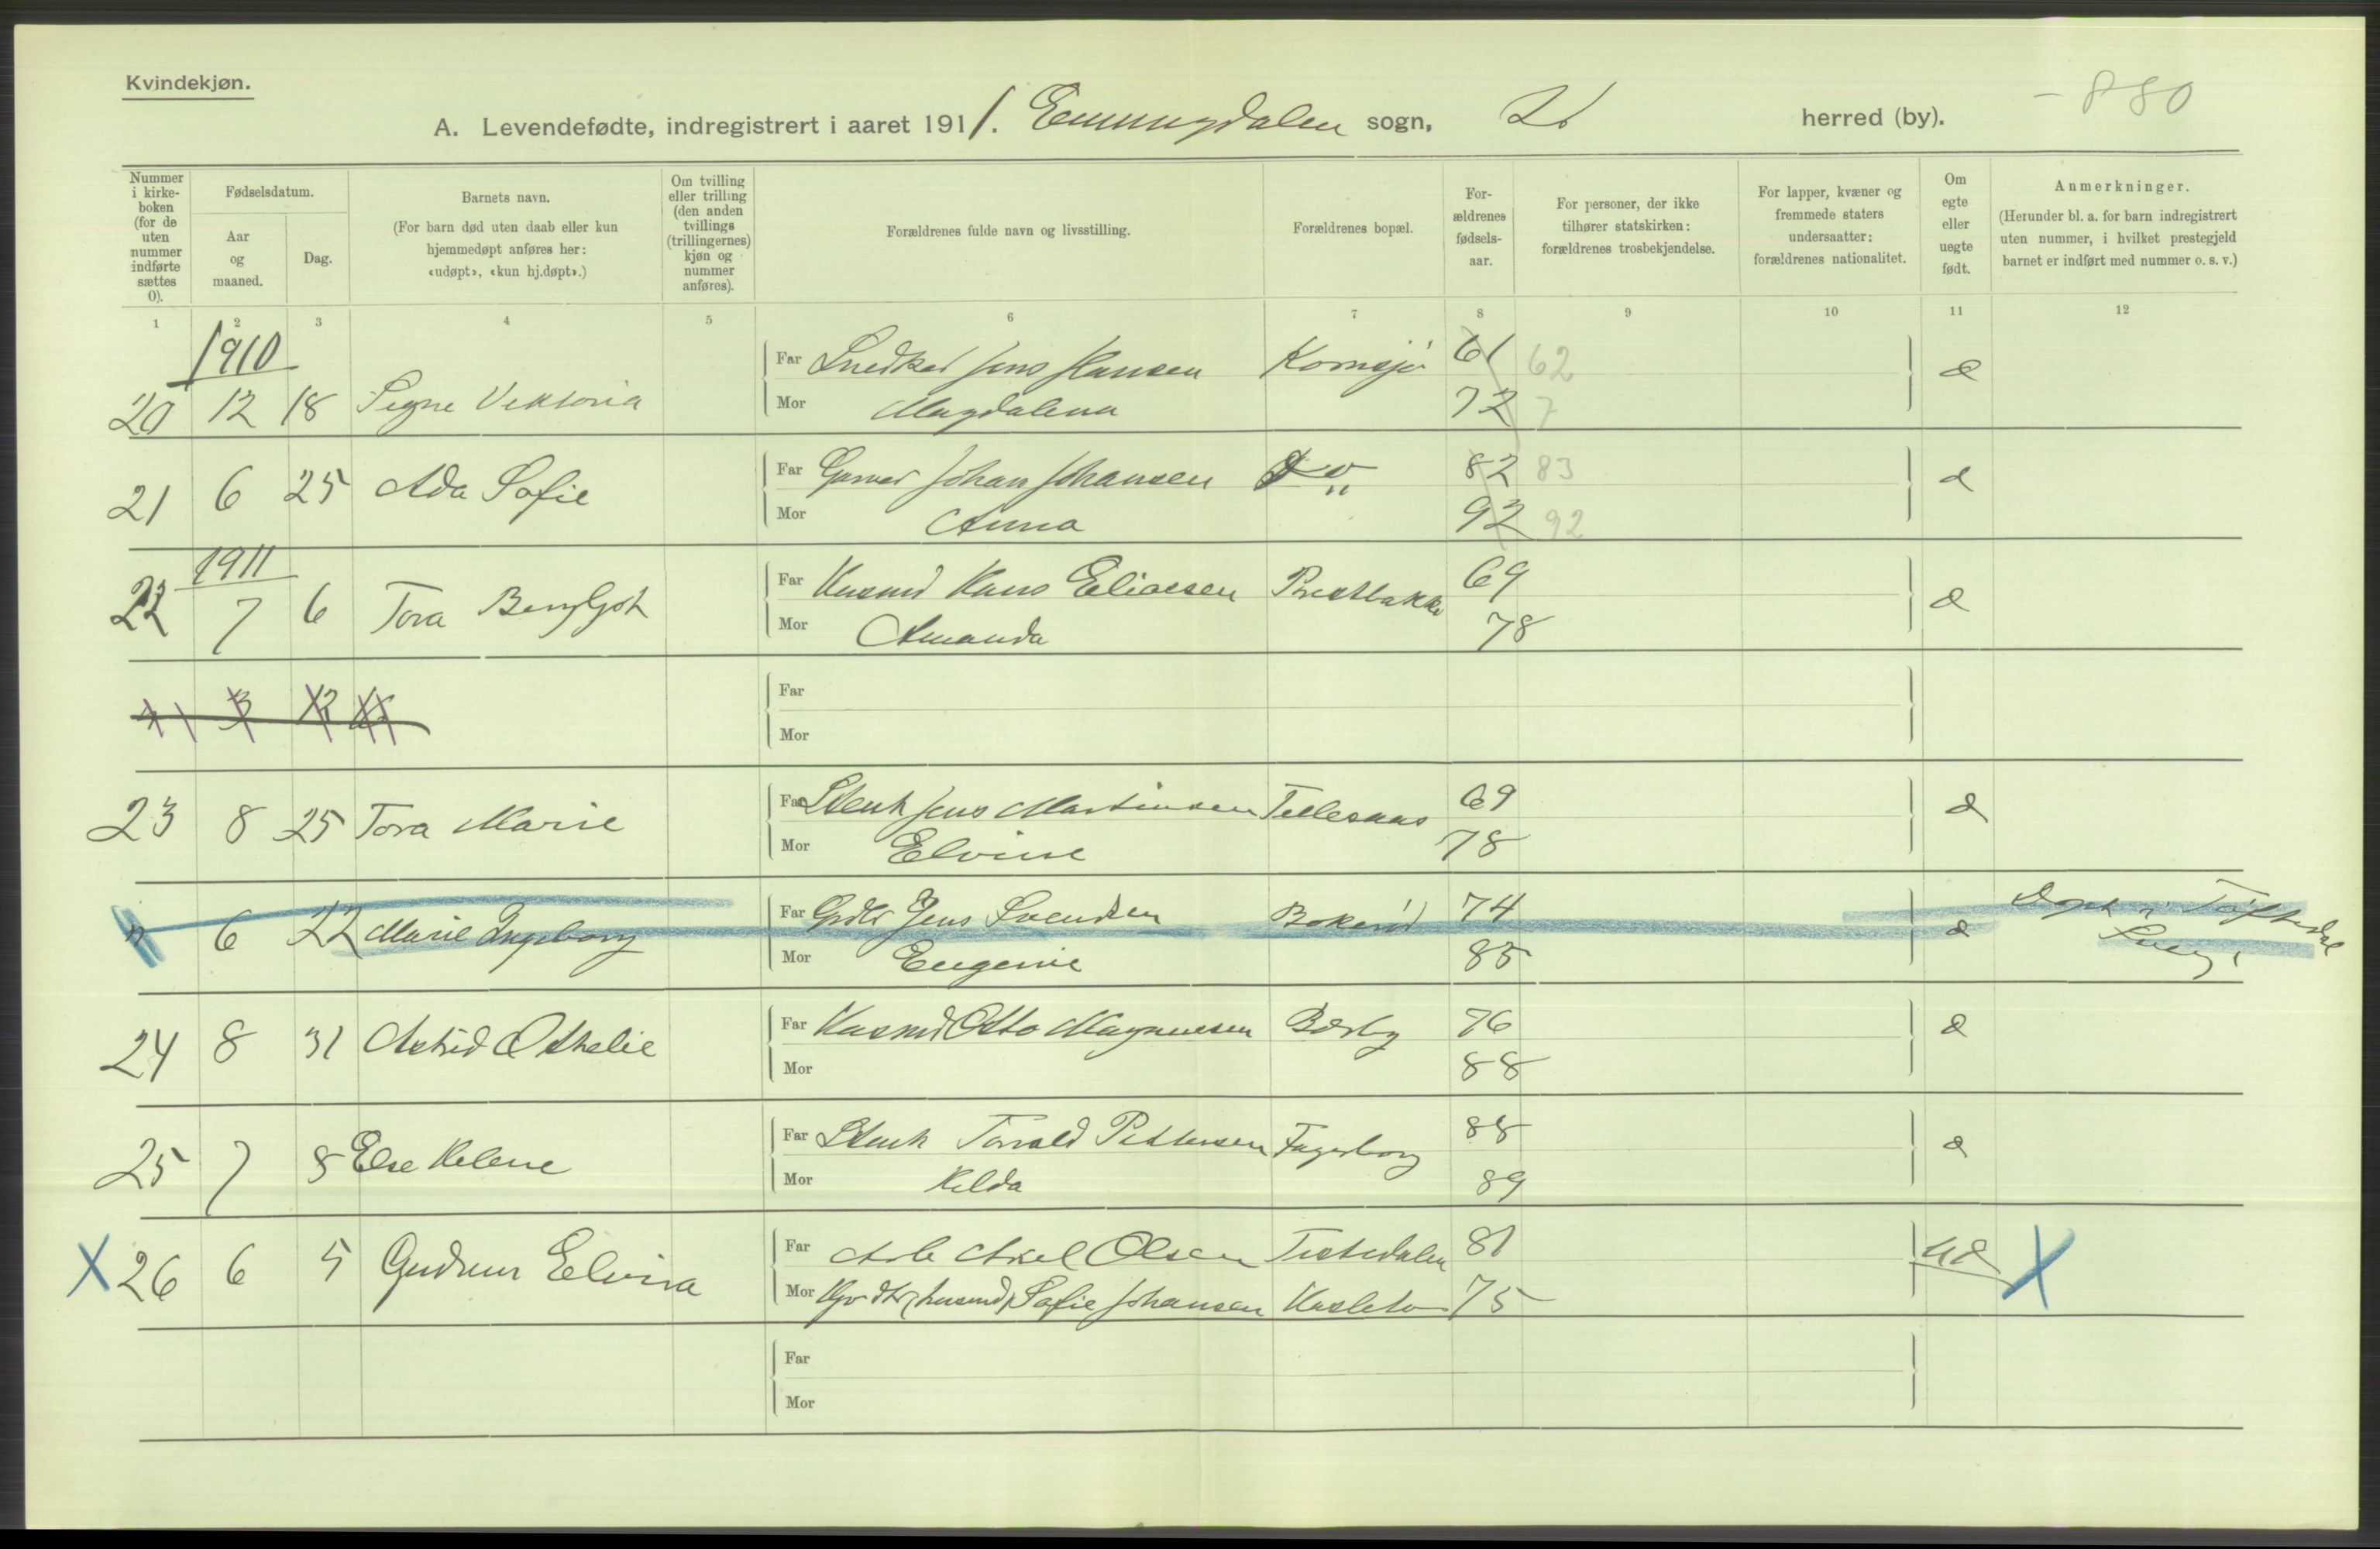 Kvindekjøn.
A. Levendefødte, indregistrert i aaret 1911. Enningdalen sogn, herred (by).
- 880
Nummer i kirkeboken (for de uten nummer indførte sættes 0).
Fødselsdatum.
Aar og maaned.
Dag.
Barnets navn.
(For barn død uten daab eller kun hjemmedøpt anføres her: «udøpt», «kun hj.døpt».)
Om tvilling eller trilling (den anden tvillings (trillingernes) kjøn og nummer anføres).
Forældrenes fulde navn og livsstilling.
Forældrenes bopæl.
Forældrenes fødselsaar.
For personer, der ikke tilhører statskirken: forældrenes trosbekjendelse.
For lapper, kvæner og fremmede staters undersaatter: forældrenes nationalitet.
Om egte eller uegte født.
Anmerkninger.
(Herunder bl. a. for barn indregistrert uten nummer, i hvilket prestegjeld barnet er indført med nummer o. s. v.)
1 2 3 4 5 6 7 8 9 10 11 12
1910
Far Snedker Jens Hansen Kornsjø 61 62
20 12 18 Signe Viktoria e
Mor Magdalena 72 7
Far Johan Johansen Do 82 83
21 6 25 Ada Sofie e
Mor Anna 92 92
1911
Far Husmd Hans Eliassen Prestbakke 69
22 7 6 Tora Bergljot e
Mor Amanda 78
Far
Mor
Far Stenh Jens Martinsen Tellesaas 69
23 8 25 Tora Marie e
Mor Elvine 78
Far Gdbr Jens Svendsen Bokerød 74
" 6 22 Marie Ingeborg e Døpt i Töftedal
Mor Eugenie 85 Sverig.
Far Husmd Otto Magnussen Berby 76
24 8 31 Astrid Othelie e
Mor 88
Far Stenh Torvald Pettersen Fagerborg 88
25 7 8 Else Helene e
Mor Hilda 89
Far Arb Axel Olsen Tistedalen 81
X 26 6 5 Gudrun Elvira ue X
Mor (husmd) Sofie Johansen Kasleto 75
Far
Mor